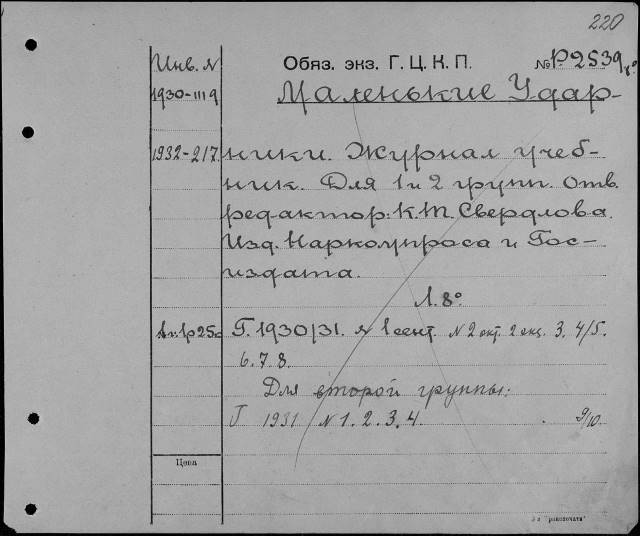 220
Инв. №
Обяз. экз. Г. Ц. К. П.
№ Р2539
1930-III 9
Маленькие Удар-
1932-217.
ники. Журнал учеб-
ник. Для 1 и 2 групп. Отв.
редактор: К.Т. Свердлова.
Изд. Наркомпроса и Гос-
издата.
Л. 8°
Г. 1930/31. № 1 сент. N 2 окт. 2 экз. 3. 4/5.
6. 7. 8.
Для второй группы:
Г 1931 N 1. 2. 3. 4. 9/10.
Цена